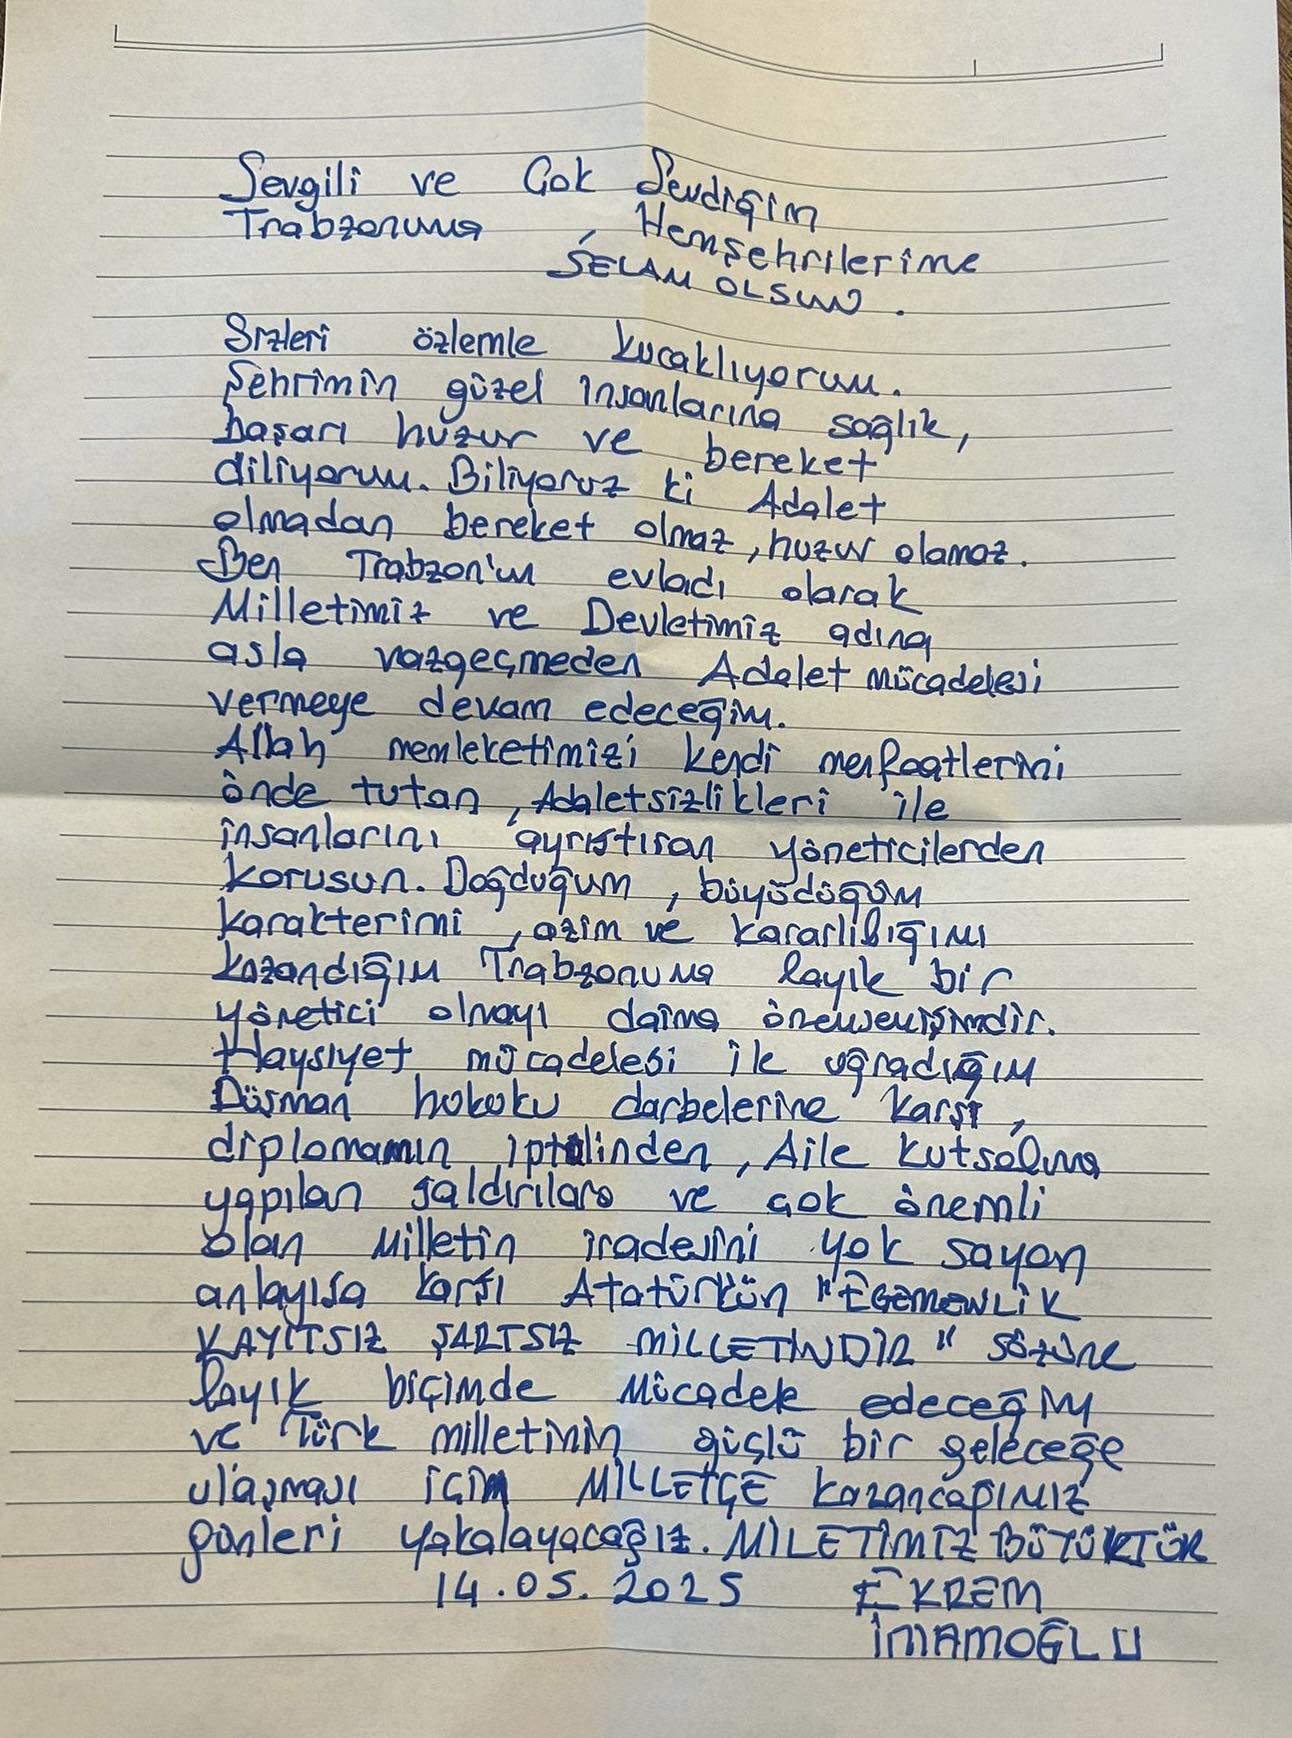 Sevgili ve Çok Sevdiğim
Trabzonuma, Hemşehrilerime
SELAM OLSUN.
Sizleri özlemle kucaklıyorum.
Şehrimin güzel insanlarına sağlık,
başarı huzur ve bereket
diliyorum. Biliyoruz ki Adalet
olmadan bereket olmaz, huzur olamaz.
Ben Trabzon'un evladı olarak
Milletimiz ve Devletimiz adına
asla vazgeçmeden Adalet mücadelesi
vermeye devam edeceğim.
Allah memleketimizi kendi menfaatlerini
önde tutan, Adaletsizlikleri ile
insanlarını ayrıştıran yöneticilerden
korusun. Doğduğum, büyüdüğüm
karakterimi, azim ve kararlılığımı
kazandığım Trabzonuma layık bir
yönetici olmayı daima önemsemişimdir.
Haysiyet mücadelesi ile uğradığım
Düşman hukuku darbelerine karşı,
diplomamın iptalinden, Aile kutsalıma
yapılan saldırılara ve çok önemli
olan Milletin iradesini yok sayan
anlayışa karşı Atatürkün "EGEMENLİK
KAYITSIZ ŞARTSIZ MİLLETİNDİR" sözüne
layık biçimde mücadele edeceğim
ve Türk milletinin güçlü bir geleceğe
ulaşması için MİLLETÇE kazancağımız
günleri yakalayacağız. MİLETİMİZ BÜYÜKTÜR
14.05.2025 EKREM
İMAMOĞLU